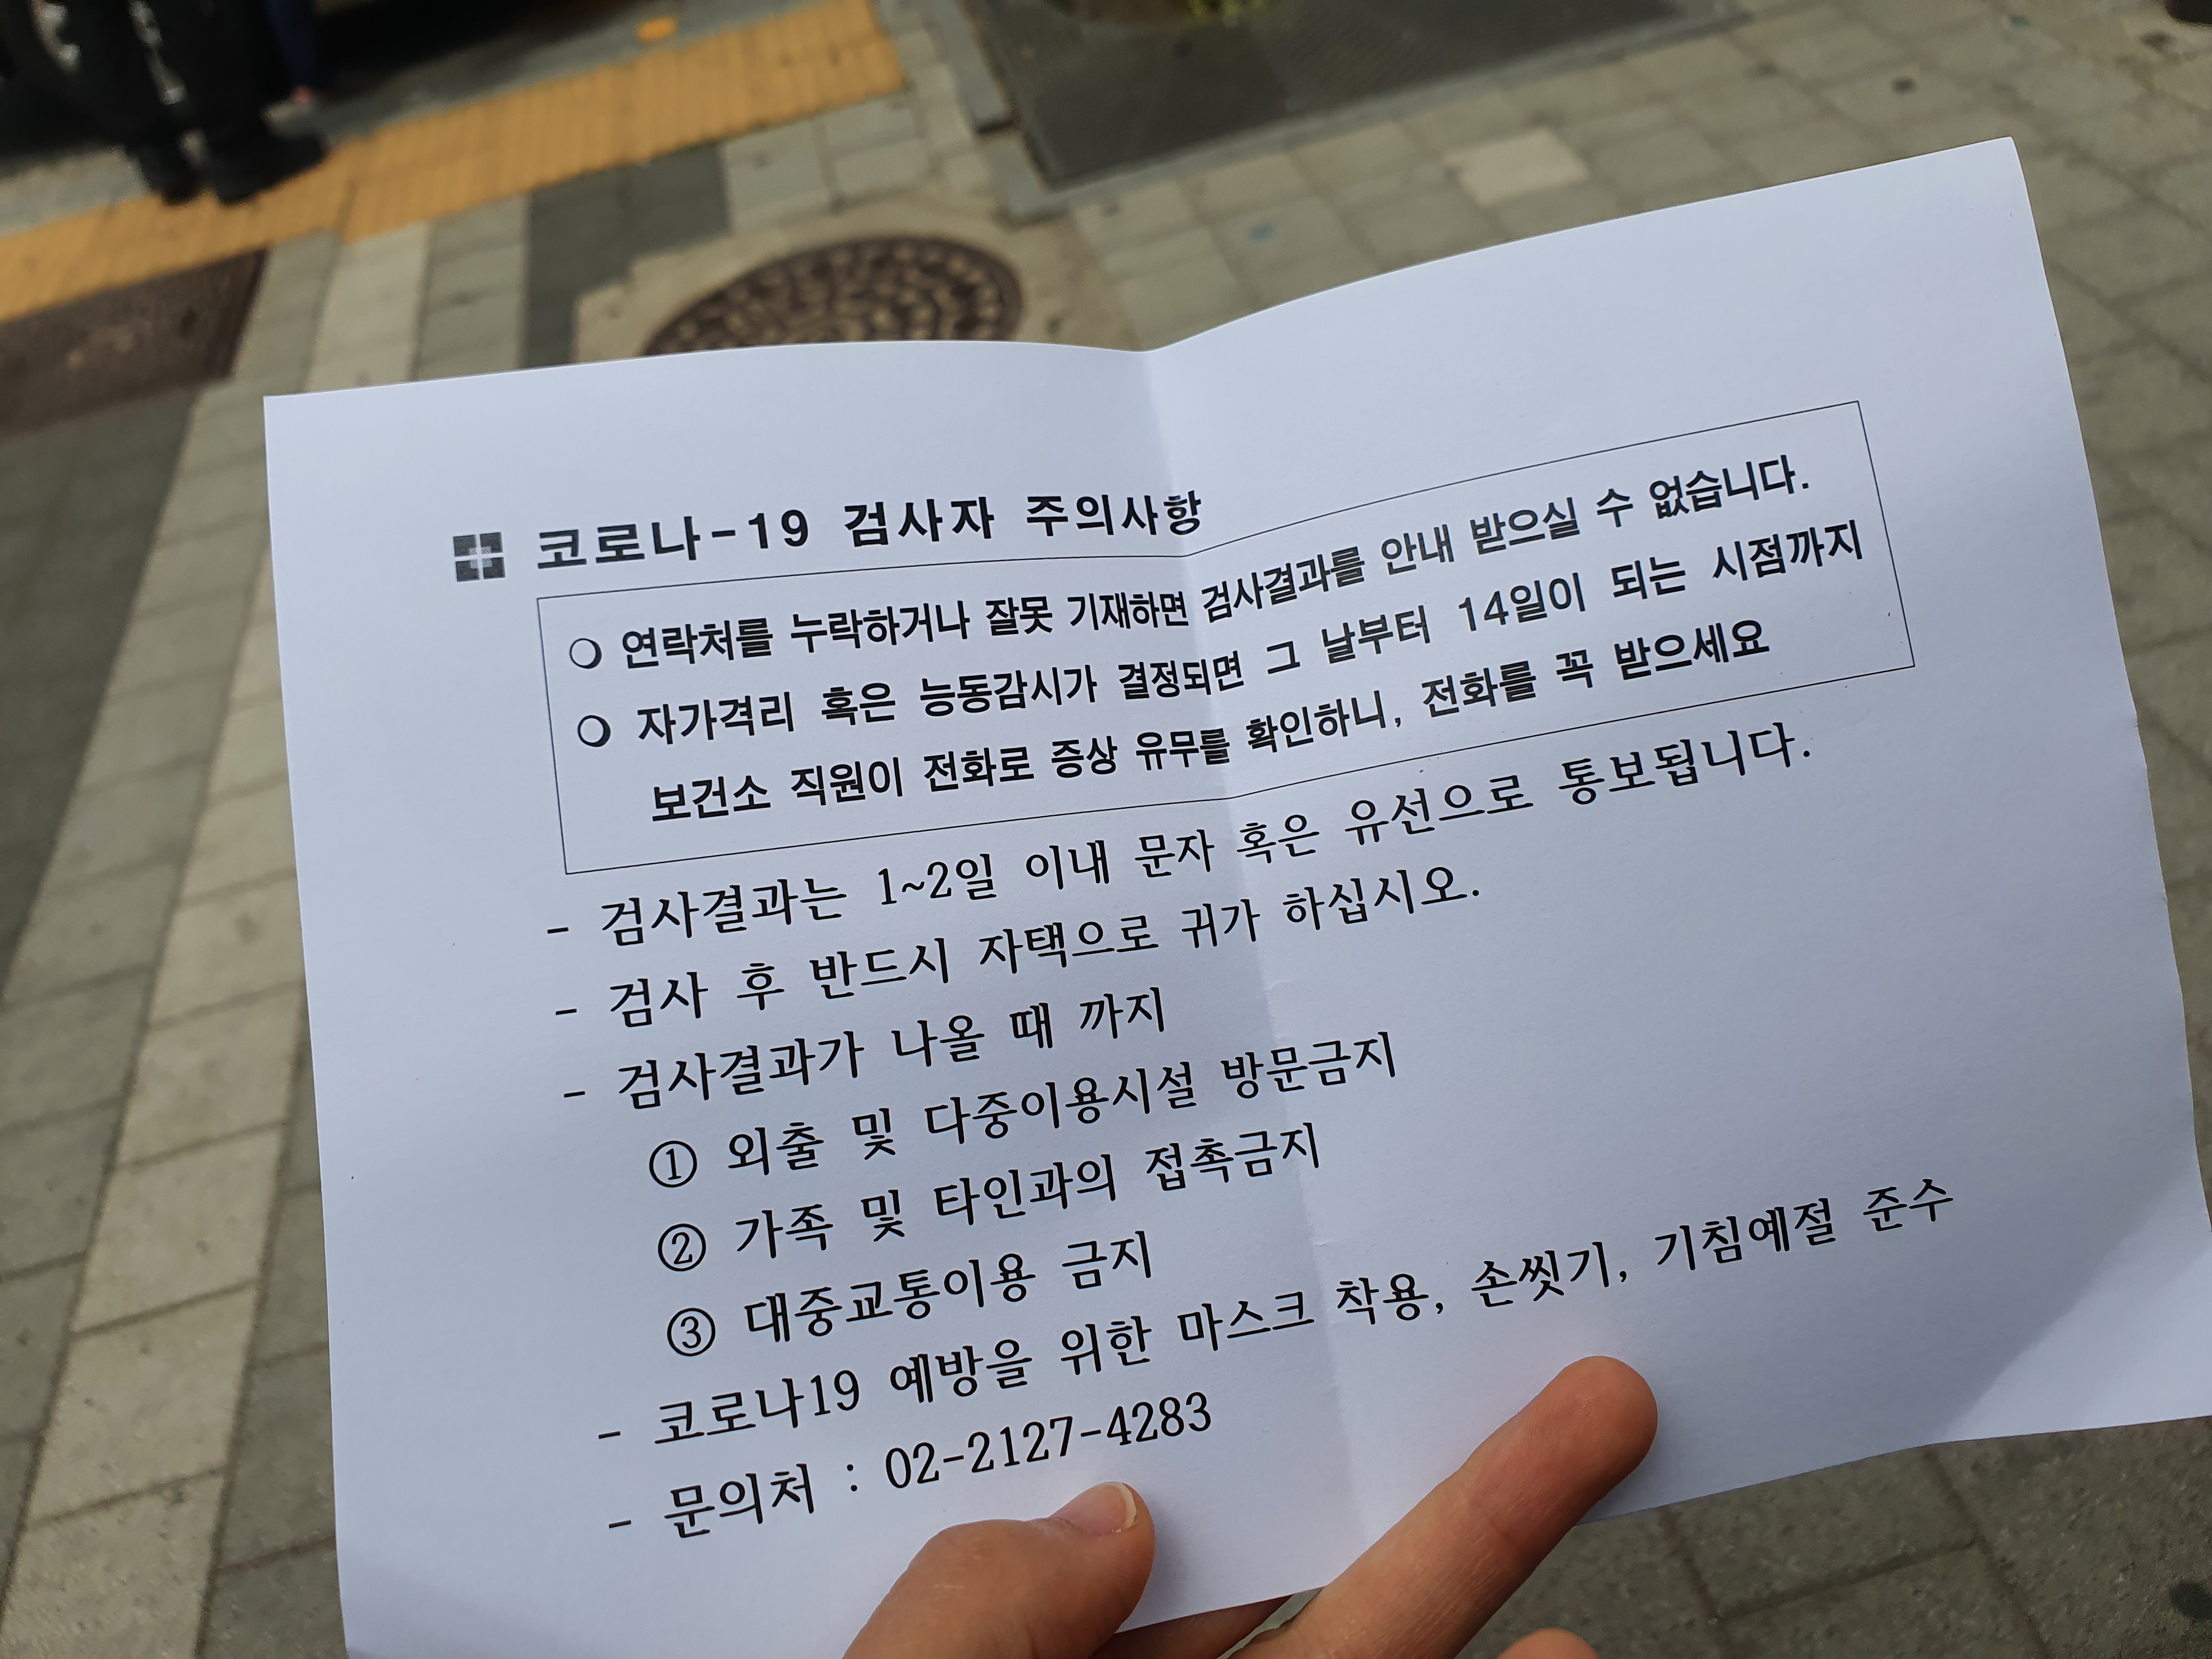 코로나-19 검사자 주의사항
❍ 연락처를 누락하거나 잘못 기재하면 검사결과를 안내 받으실 수 없습니다.
❍ 자가격리 혹은 능동감시가 결정되면 그 날부터 14일이 되는 시점까지
보건소 직원이 전화로 증상 유무를 확인하니, 전화를 꼭 받으세요
- 검사결과는 1~2일 이내 문자 혹은 유선으로 통보됩니다.
- 검사 후 반드시 자택으로 귀가 하십시오.
- 검사결과가 나올 때 까지
① 외출 및 다중이용시설 방문금지
② 가족 및 타인과의 접촉금지
③ 대중교통이용 금지
- 코로나19 예방을 위한 마스크 착용, 손씻기, 기침예절 준수
- 문의처 : 02-2127-4283